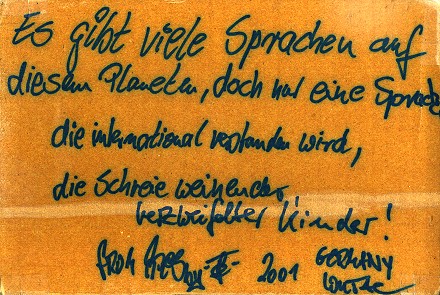 Es gibt viele Sprachen auf
diesem Planeten, doch nur eine Sprache,
die international verstanden wird,
die Schreie weinender,
verzweifelter Kinder!
from 2001 GERMANY